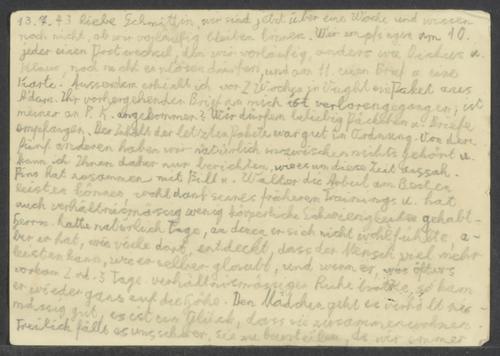 13.7.43 Liebe Schmittin, wir sind jetzt über eine Woche und wissen
noch nicht, ob wir vorläufig bleiben können. Wir empfingen am 10.
jeder einen Postwechsel, den wir vorläufig, anders wie
noch nicht einlösen dürfen, und am 11. einen Brief u. eine
Karte. Ausserdem erhielt ich vor 2 Wochen in Vught ein Paket aus
A'dam. Ihr vorhergehender Brief an mich ist verlorengegangen; ist
meiner an P. K. angekommen? Wir dürfen beliebig Päckchen u. Briefe
empfangen. Der Inhalt der letzten Pakete war gut in Ordnung. Von den
fünf anderen haben wir natürlich inzwischen nichts gehört u.
kann ich Ihnen daher nur berichten, wie es um diese Zeit aussah.
hat zusammen mit Bill u. Walter die Arbeit am Besten
leisten können, wohl dank seines früheren Trainings u. hat
auch verhältnismässig wenig körperliche Schwierigkeiten gehabt.
hatte natürlich Tage, an denen er sich nicht wohl fühlte, a-
ber er hat, wie viele dort, entdeckt, dass der Mensch viel mehr
leisten kann, wie er selber glaubt, und wenn er, was öfters
vorkam 2 od. 3 Tage verhältnismässiger Ruhe hatte, so kam
er wieder ganz auf die Höhe. Den Mädchen geht es verhältnis-
mässig gut, es ist ein Glück, dass sie zusammen wohnen.
Freilich fällt es uns schwer, sie zu beurteilen, da wir immer